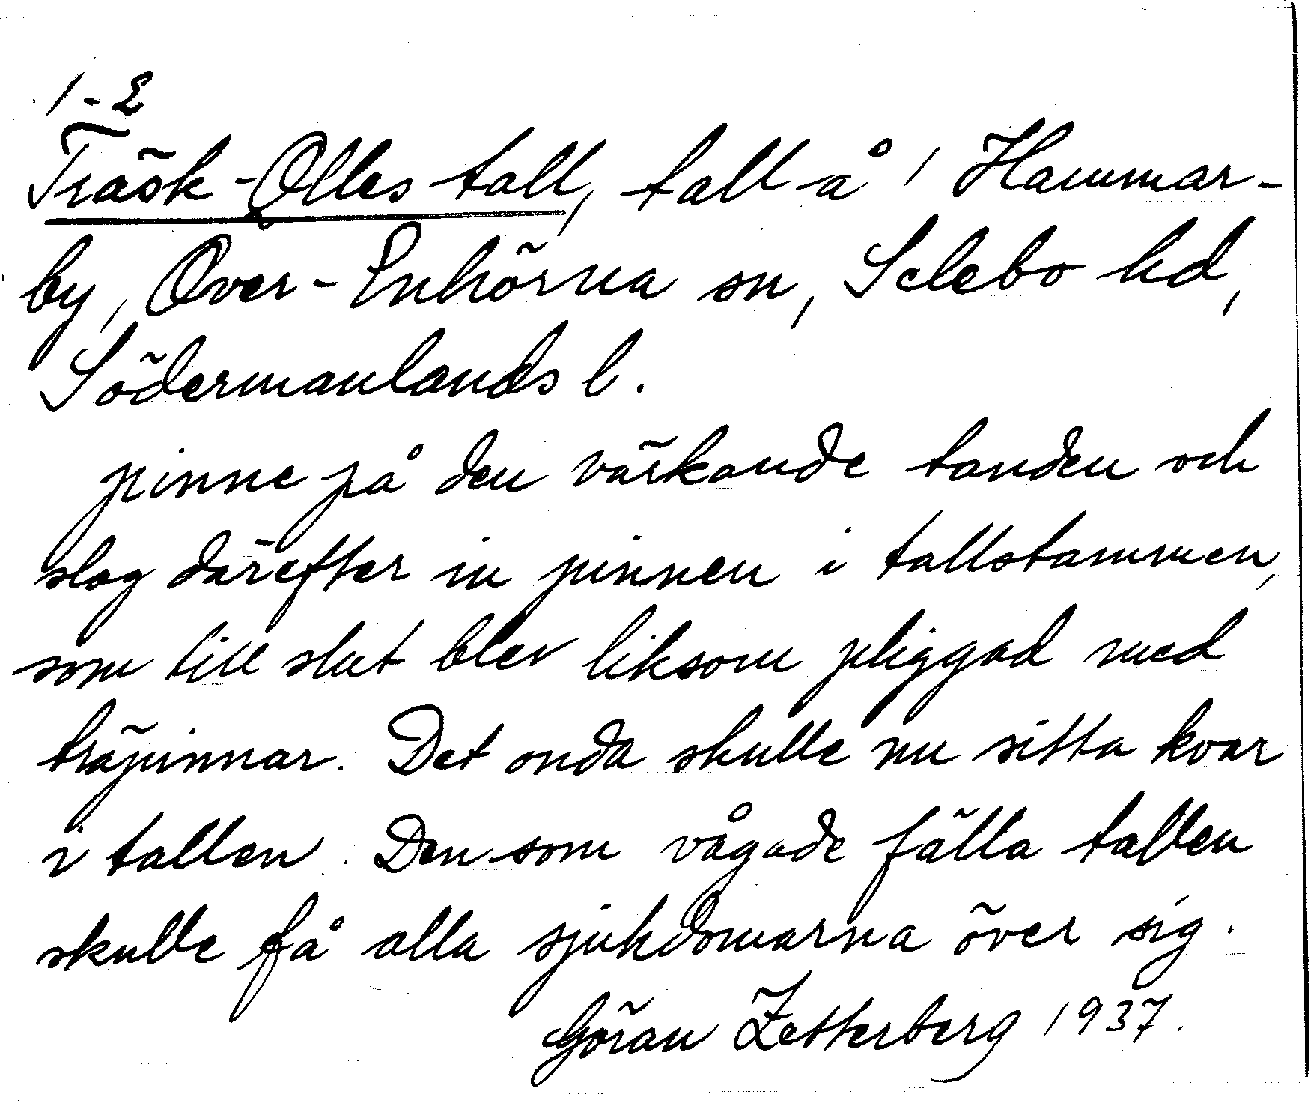 1-2
Träsk-Olles tall, tall å 1 Hammar-
by, Över-Enhörna sn, Selebo hd,
Södermanlands l.
pinne på den värkande tanden och
slog därefter in pinnen i tallstammen,
som till slut blev liksom pliggad med
träpinnar. Det onda skulle nu sitta kvar
i tallen. Den som vågade fälla tallen
skulle få alla sjukdomarna över sig.
Göran Zetterberg 1937.